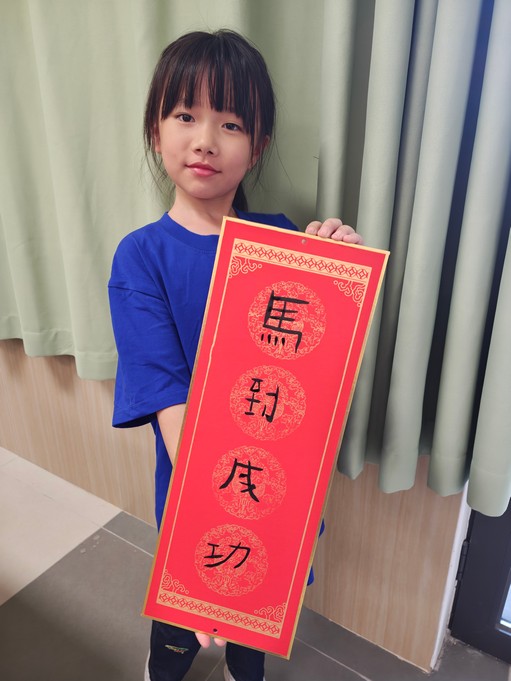 馬
到
成
功